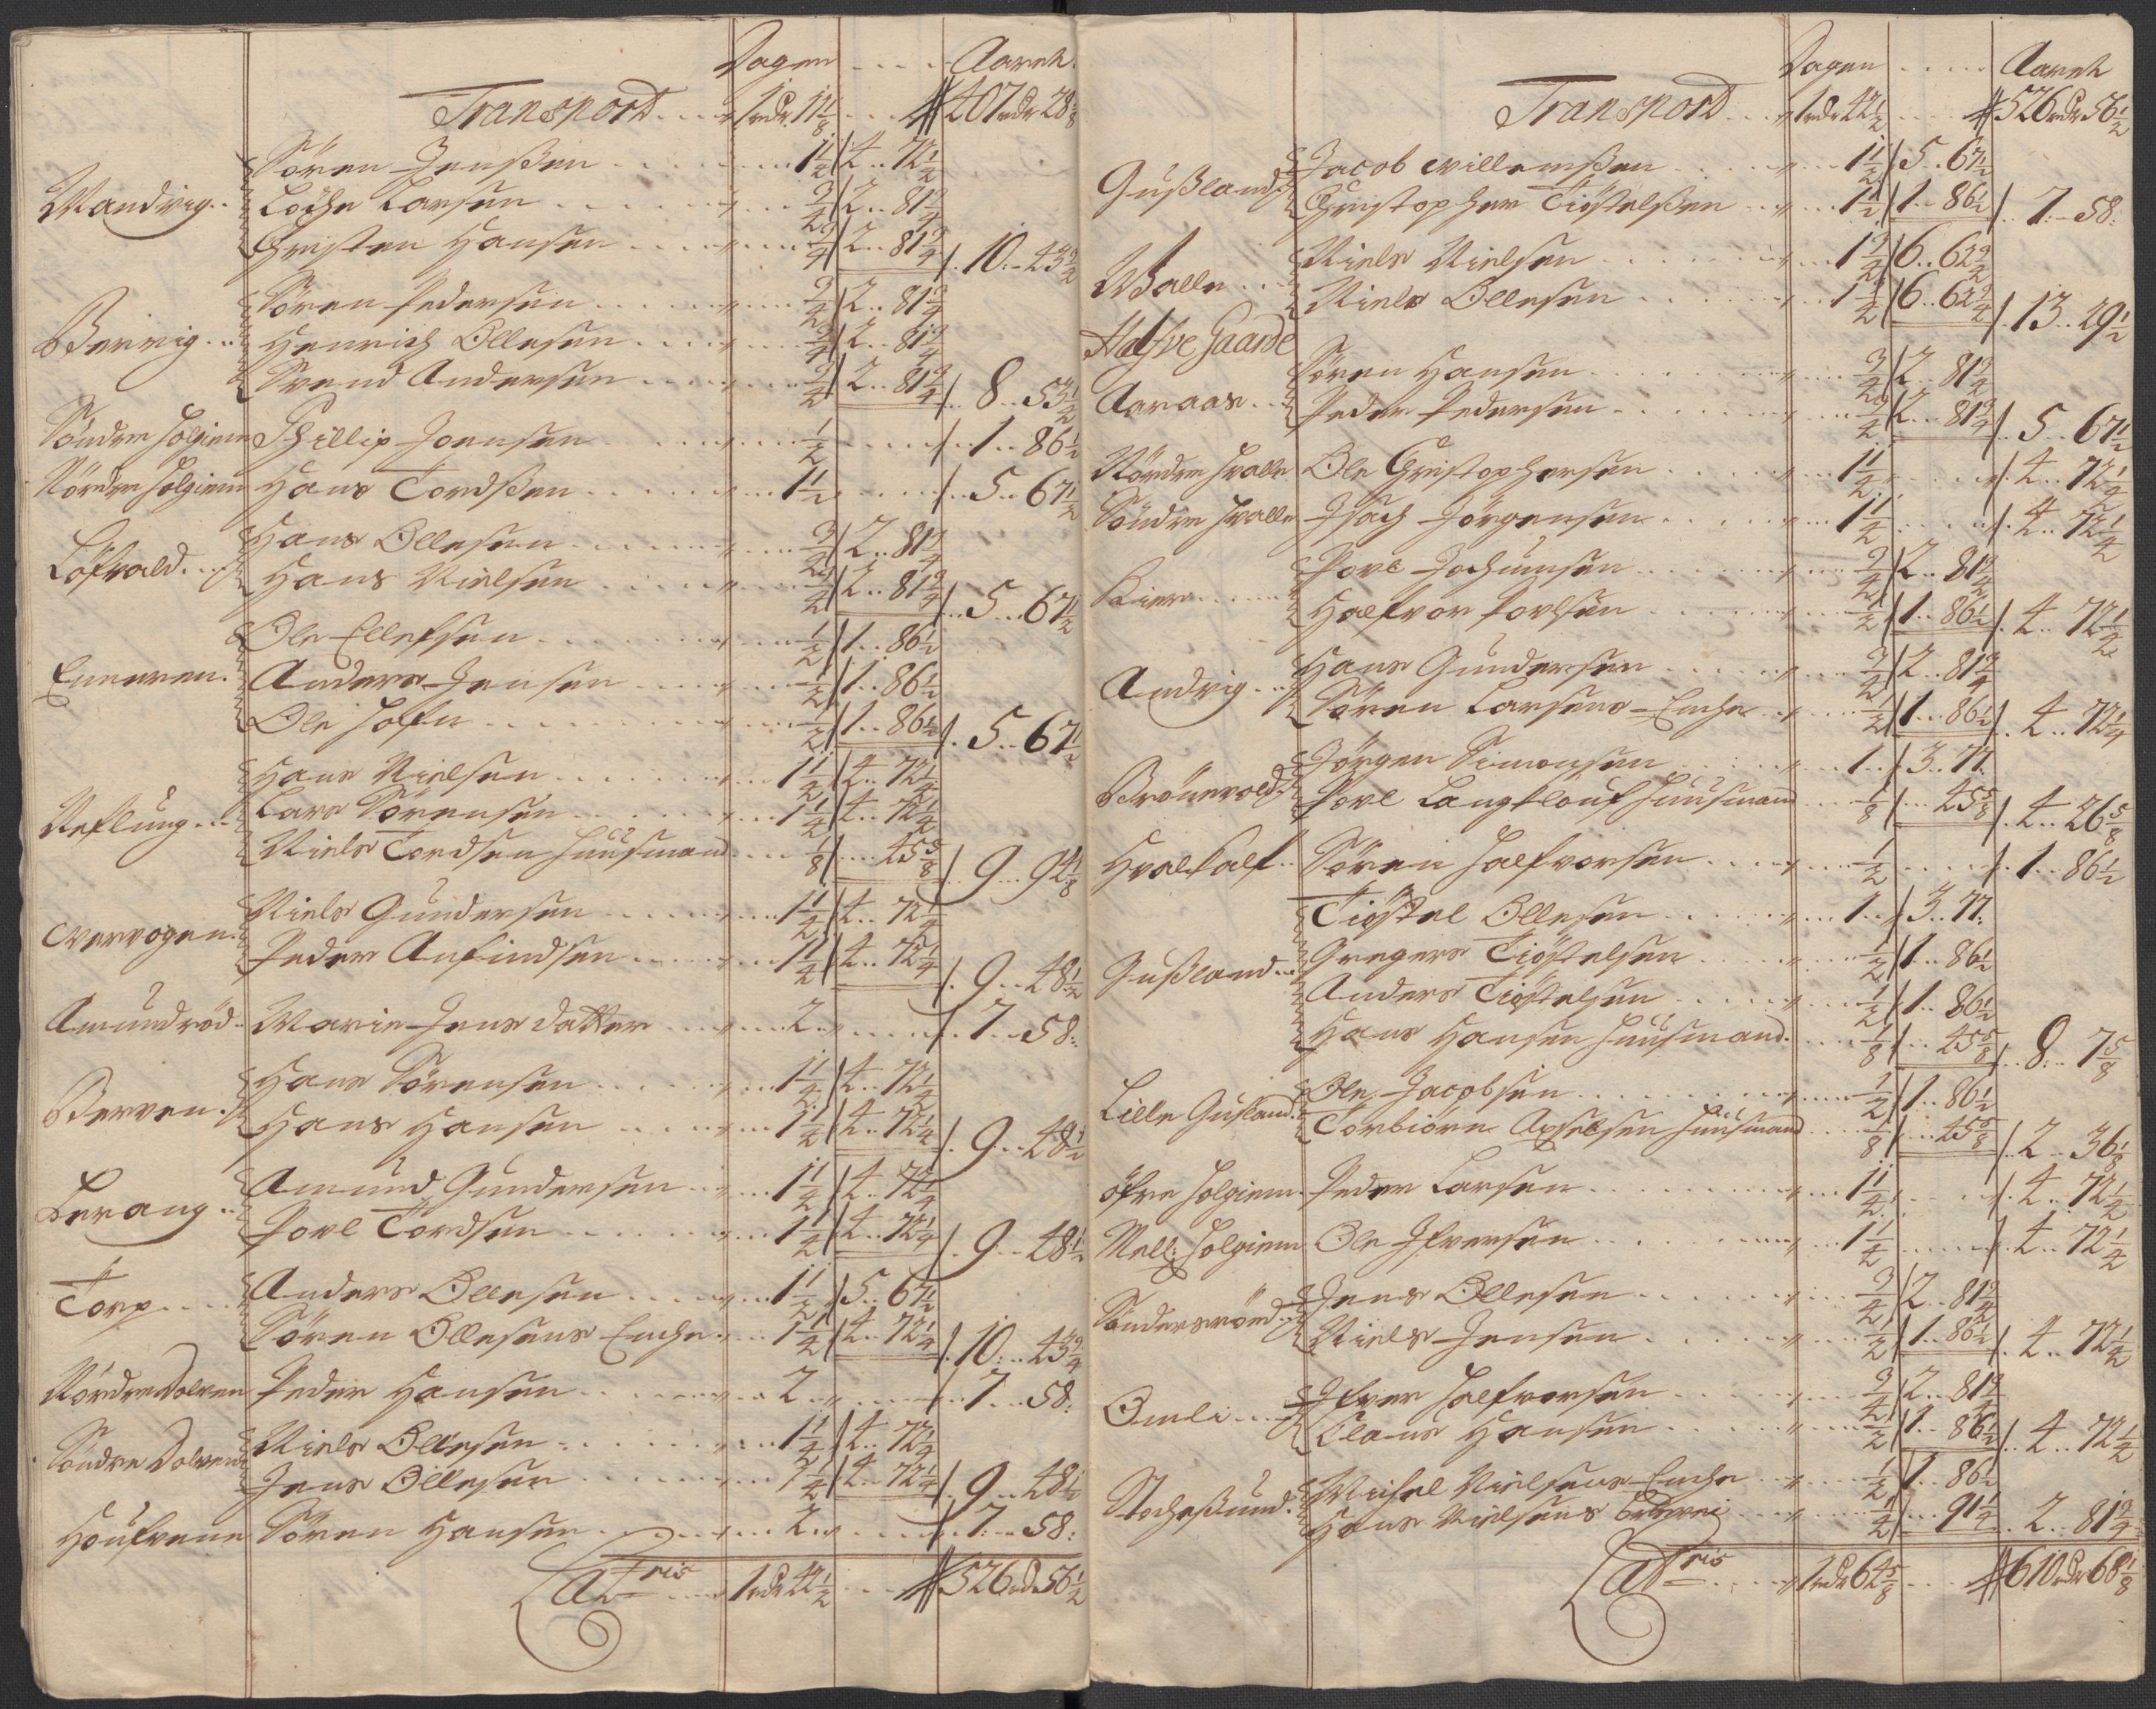 Dagen .... Aaret
Transport .... 1 rdr 11 1/8 ... 407 rdr 28 1/8
Sören Jenssen .... 1 1/4 4 .. 72 1/4
Mandvig .. Löche Larsen .... 3/4 2 .. 81 3/4
Christen Hansen .... 3/4 2 .. 81 3/4 10 .. 43 3/4
Sören Pedersen .... 3/4 2 .. 81 3/4
Bervig ... Henrich Ollesen .... 3/4 2 .. 81 3/4
Svend Andersen .... 3/4 2 .. 81 3/4 8 .. 53 1/4
Söndre holgien Phillip Joensen .... 1/2 1 .. 86 1/2
Nördre holgien Hans Tordssen .... 1 1/2 5 .. 67 1/2
Hans Ollesen .... 3/4 2 .. 81 3/4
Löfvald ... Hans Nielsen .... 3/4 2 .. 81 3/4 5 .. 67 1/2
Ole Ellefsen .... 1/2 1 .. 86 1/2
Enneren . Anders Jensen .... 1/2 1 .. 86 1/2
Ole hofn .... 1/2 1 .. 86 1/2 5 .. 67 1/2
Hans Nielsen .... 1 1/4 4 .. 72 1/4
Neflung ... Lars Sörensen .... 1 1/4 4 .. 72 1/4
Niels Tordsen huusmand .. 1/8 .... 45 5/8 9 .. 94 1/8
Niels Gundersen .... 1 1/4 4 .. 72 1/4
Wervogen . Peder Anfindsen .... 1 1/4 4 .. 72 1/4 9 .. 48 1/2
Amundröd .. Marie Jens datter .... 2 .. 7 .. 58
Hans Sörensen .... 1 1/4 4 .. 72 1/4
Berven ... Hans Hansen .... 1 1/4 4 .. 72 1/4 9 .. 48 1/2
Amund Gundersen .... 1 1/4 4 .. 72 1/4
Lerang .. Povl Tordsen .... 1 1/4 4 .. 72 1/4 9 .. 48 1/2
Anders Ollesen .... 1 1/2 5 .. 67 1/2
Torp .... Sören Ollesens Enche .. 1 1/4 4 .. 72 1/4 10 .. 43 3/4
Nördre Dolven Peder Hansen .... 2 .. 7 .. 58
Niels Ollesen .... 1 1/4 4 .. 72 1/4
Söndre Dolven Jens Ollesen .... 1 1/4 4 .. 72 1/4 9 .. 48 1/2
Houfvene Sören Hansen .... 2 .. 7 .. 58
Latris .... 1 rdr 42 1/2 ... 526 rd 56 1/2
Dagen .... Aaret
Transport ... 1 rdr 42 1/2 .... 526 rdr 56 1/2
Jacob Willemssen .... 1 1/2 5 .. 67 1/2
Gussland Christopher Tiöstelssen .. 1/2 1 .. 86 1/2 7 .. 58
Niels Nielsen .... 1 3/4 6 .. 62 3/4
Walle ... Niels Ollesen .... 1 3/4 6 .. 62 3/4 13 .. 29 1/2
Halfve Gaarde
Sören Hansen .... 3/4 2 .. 81 3/4
Aaraas .. Peder Pedersen .... 3/4 2 .. 81 3/4 5 .. 67 1/2
Nördre hvalle Ole Christophersen .... 1 1/4 4 .. 72 1/4
Söndre hvalle Isach Jörgensen .... 1 1/4 4 .. 72 1/4
Povl Jochumsen .... 3/4 2 .. 81 3/4
Kier .... Halfvor Povlsen .... 1/2 1 .. 86 1/2 4 .. 72 1/4
Hans Gundersen .... 3/4 2 .. 81 3/4
Andvig ... Sören Larsens Enche .. 1/2 1 .. 86 1/2 4 .. 72 1/4
Jörgen Simonsen .... 1 .. 3 .. 77
Brönevold Povl Langflouf huusmand .. 1/8 .. 45 5/8 4 .. 26 5/8
Hvalkalf .. Sören Halfvorsen .... 1/2 1 .. 86 1/2
Tiöstel Ollesen .... 1 .. 3 .. 77
Gussland ... Gregers Tiöstelsen .... 1/2 1 .. 86 1/2
Anders Tiöstelsen .... 1/2 1 .. 86 1/2
Hans Hansen huusmand .... 1/8 .. 45 5/8 8 .. 7 5/8
Ole Jacobsen .... 1/2 1 .. 86 1/2
Lille Gusland Torbiörn Axselsen huusmand .. 1/8 .. 45 5/8 2 .. 36 1/8
öfre holgien Peder Larsen .... 1 1/4 4 .. 72 1/4
Mell: holgien Ole Ifversen .... 1 1/4 4 .. 72 1/4
Jens Ollesen .... 3/4 2 .. 81 3/4
Söndersröed Niels Jensen .... 1/2 1 .. 86 1/2 4 .. 72 1/4
Ifver Halfvorsen .... 3/4 2 .. 81 3/4
Omli .... Claus Hansen .... 1/2 1 .. 86 1/2 4 .. 72 1/4
Michel Nielsens Enche .. 1/2 1 .. 86 1/2
Stochessund . Hans Nielsens .. 1/4 .. 91 1/4 2 .. 81 3/4
Latris .... 1 rdr 64 5/8 ... 610 rdr 68 1/8